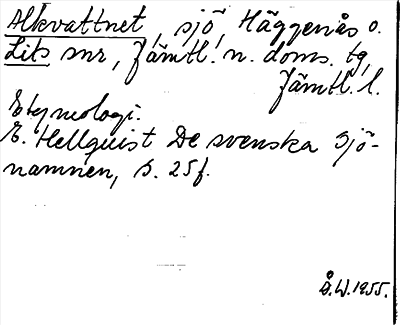 Alkvattnet, sjö, Häggenås o.
Lits snr, Jämtl. n. doms. tg,
Jämtl. l.
Etymologi.
E. Hellquist De svenska sjö-
namnen, s. 25 f.
Å.W. 1955.